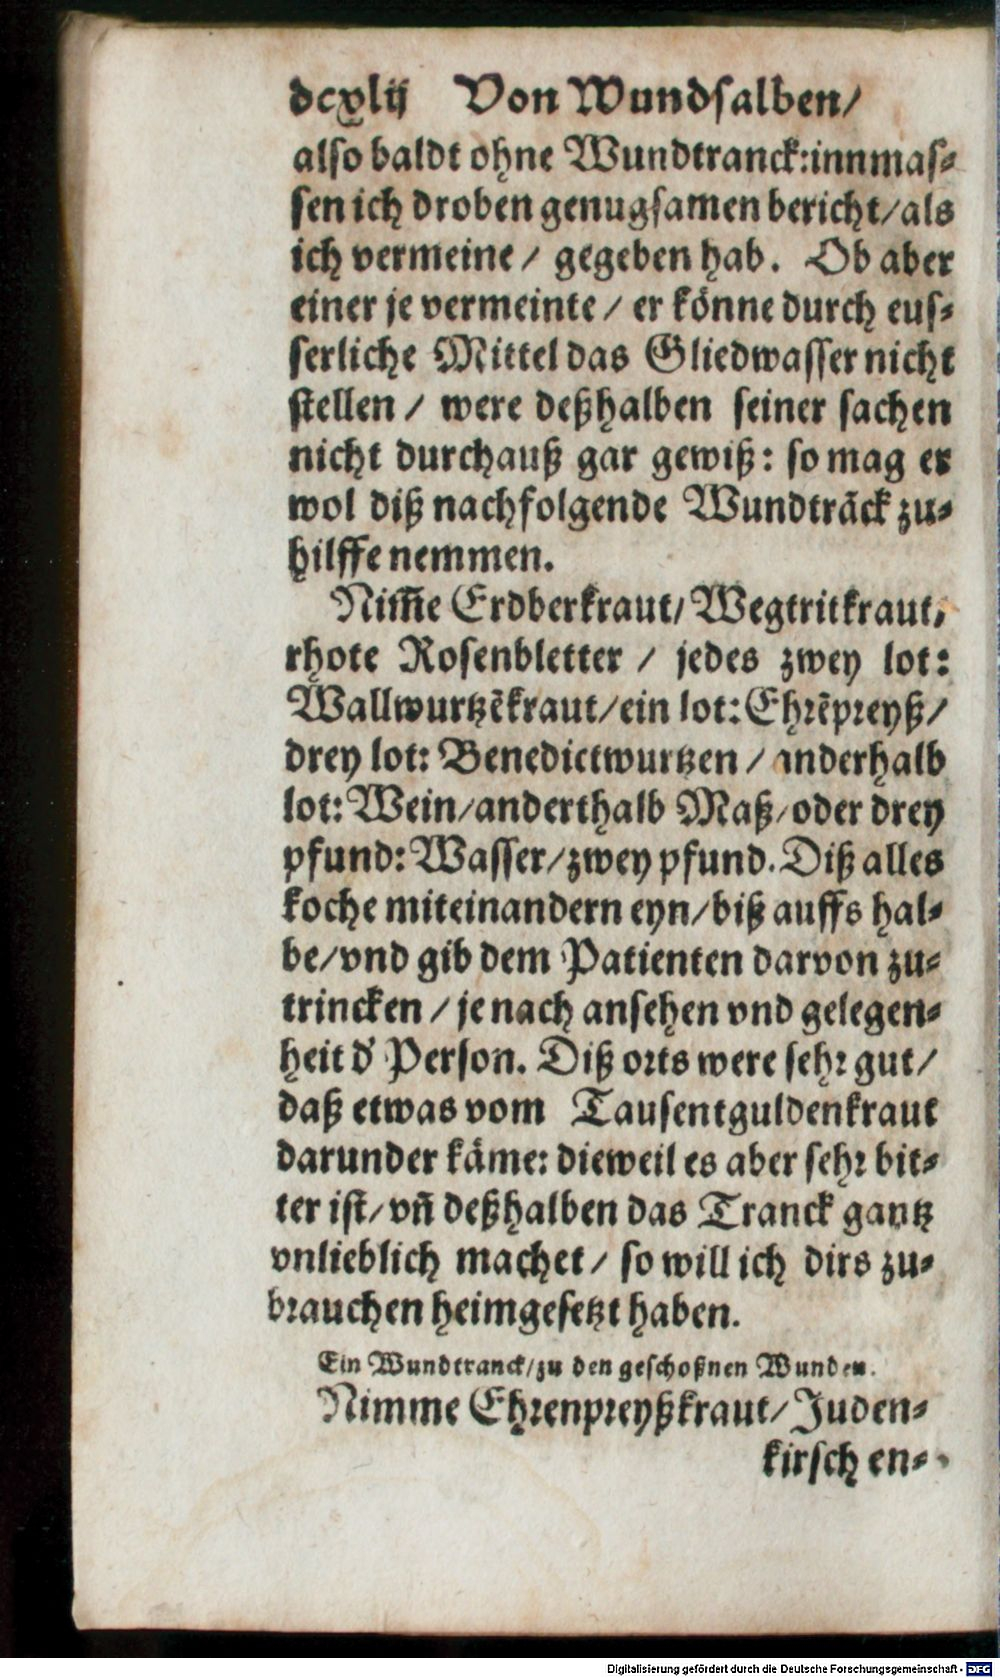 dcxlij Von Wundsalben/
also baldt ohne Wundtranck: innmas-
sen ich droben genugsamen bericht/als
ich vermeine/ gegeben hab. Ob aber
einer je vermeinte/ er könne durch eus-
serliche Mittel das Gliedwasser nicht
stellen/ were deßhalben seiner sachen
nicht durchauß gar gewiß: so mag er
wol diß nachfolgende Wundträck zu-
hilffe nemmen.
Nim̄e Erdberkraut/Wegtritkraut,
rhote Rosenbletter/ jedes zwey lot:
Wallwurtzēkraut/ein lot: Ehrēpreyß/
drey lot: Benedictwurtzen/ anderhalb
lot: Wein/anderthalb Maß/oder drey
pfund: Wasser/zwey pfund. Diß alles
koche miteinandern eyn/biß auffs hal-
be/vnd gib dem Patienten darvon zu-
trincken/je nach ansehen vnd gelegen-
heit d' Person. Diß orts were sehr gut/
daß etwas vom Tausentguldenkraut
darunder käme: dieweil es aber sehr bit-
ter ist/vn̄ deßhalben das Tranck gantz
vnlieblich machet/ so will ich dirs zu-
brauchen heimgesetzt haben.
Ein Wundtranck/zu den geschoßnen Wunden.
Nimme Ehrenpreyßkraut/Juden-
kirschen-
Digitalisierung gefördert durch die Deutsche Forschungsgemeinschaft - DFG